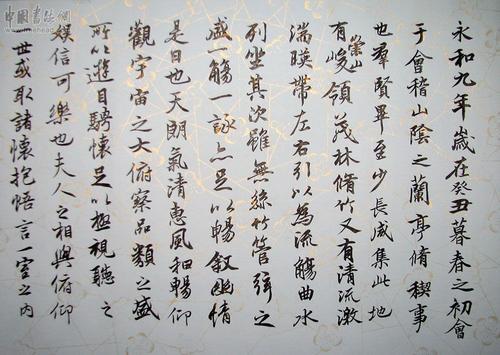 中國書法網
永和九年歲在癸丑暮春之初會
于會稽山陰之蘭亭脩稧事
也羣賢畢至少長咸集此地
有崇山峻領茂林脩竹又有清流激
湍暎帶左右引以為流觴曲水
列坐其次雖無絲竹管弦之
盛一觴一詠亦足以暢敘幽情
是日也天朗氣清惠風和暢仰
觀宇宙之大俯察品類之盛
所以遊目騁懷足以極視聽之
娛信可樂也夫人之相與俯仰
世或取諸懷抱悟言一室之內